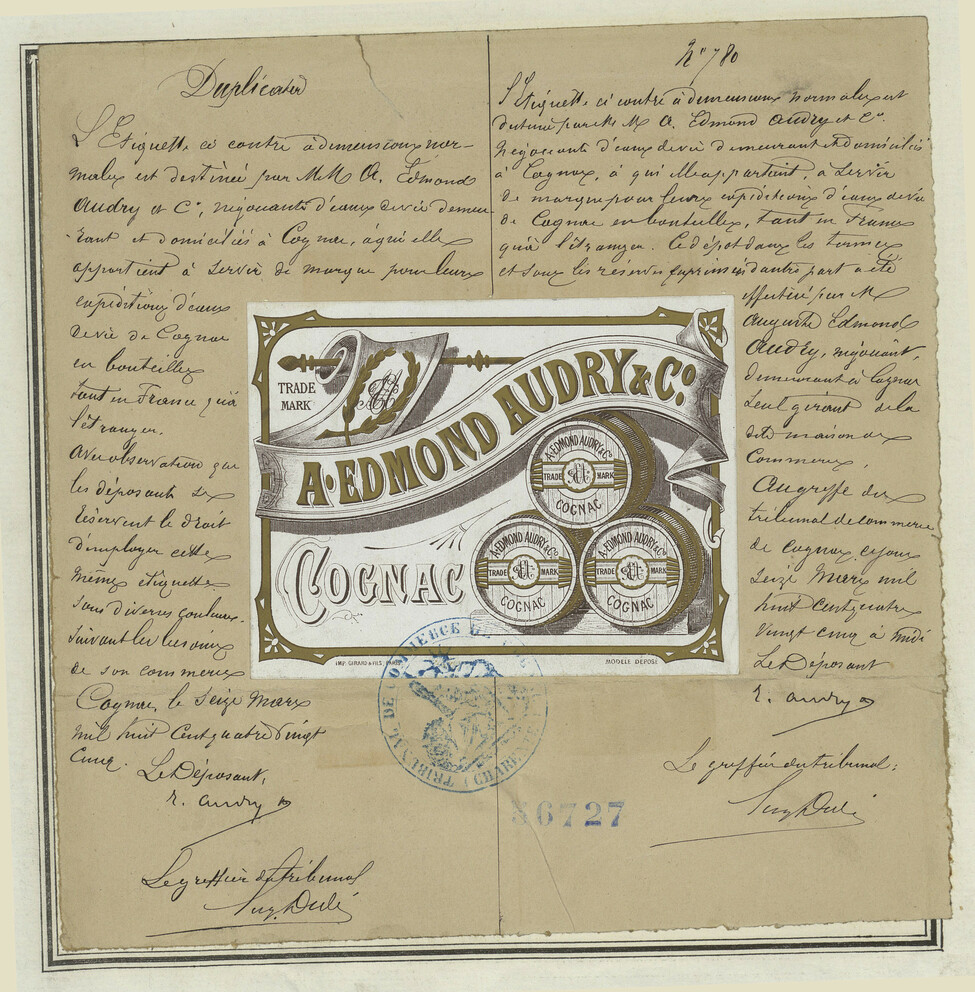 Duplicata
L'Etiquette ci contre à dimensions nor-
males est destinée par MM A. Edmond
Audry et Cie, négociants d'eaux de vie demeu-
-rant et domiciliés à Cognac, à qui elle
appartient à servir de marque pour leurs
expéditions d'eaux
de vie de Cognac
en bouteilles
tant en France qu'à
l'étranger.
Avec observation que
les déposants se
réservent le droit
d'employer cette
même étiquette
sous diverses couleurs
suivant les besoins
de son commerce
Cognac, le seize mars
mil huit cent quatre vingt
cinq.
Le Déposant,
E. Audry
Le greffier du tribunal
No 780
L'Etiquette ci contre à dimensions normales est
destinée par MM A. Edmond Audry et Cie
négociants d'eaux de vie demeurant et domiciliés
à Cognac, à qui elle appartient, à servir
de marque pour leurs expéditions d'eaux de vie
de Cognac en bouteilles, tant en France
qu'à l'étranger. Ce dépôt dans les termes
et sous les réserves exprimées d'autre part a été
effectué par M
Auguste Edmond
Audry, négociant,
demeurant à Cognac
seul gérant de la
dite maison de
Commerce,
Au greffe du
tribunal de commerce
de Cognac, ce jour
seize Mars mil
huit cent quatre
vingt cinq à midi
Le Déposant
E. Audry
Le greffier du tribunal:
TRADE
MARK
A. EDMOND AUDRY & Co.
COGNAC
A. EDMOND AUDRY & Co.
TRADE MARK
COGNAC
A. EDMOND AUDRY & Co.
TRADE MARK
COGNAC
A. EDMOND AUDRY & Co.
TRADE MARK
COGNAC
IMP. GIRARD & FILS, PARIS.
MODÈLE DÉPOSÉ
TRIBUNAL DE COMMERCE DE
56727